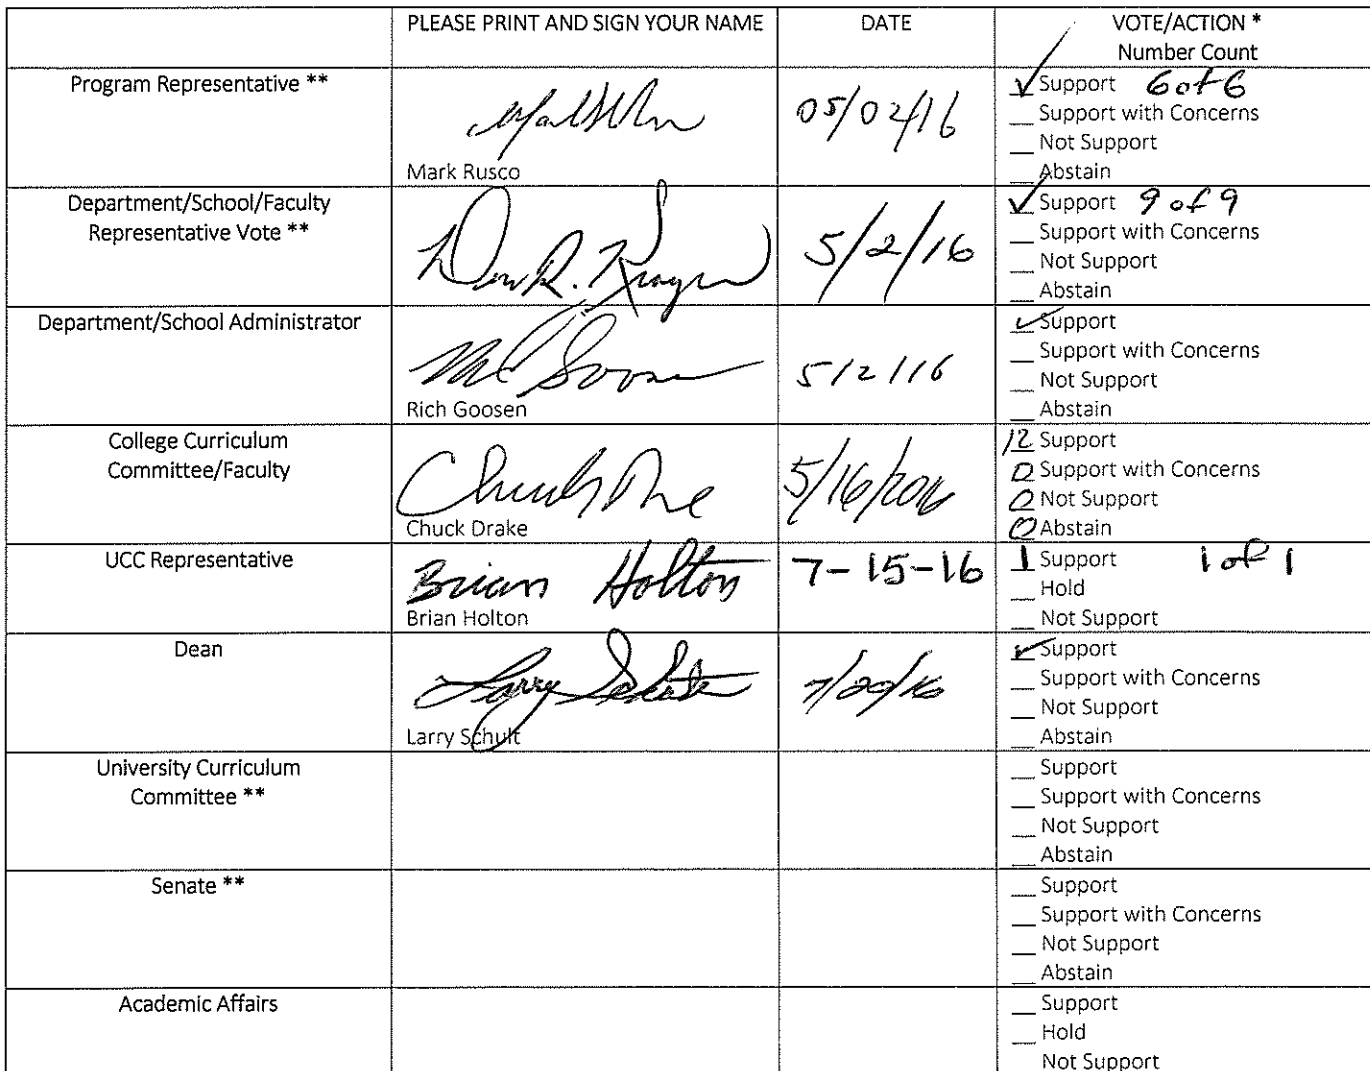 PLEASE PRINT AND SIGN YOUR NAME DATE VOTE/ACTION *
Number Count
Program Representative **
Mark Rusco
05/02/16
✓ Support 6 of 6
__ Support with Concerns
__ Not Support
__ Abstain
Department/School/Faculty
Representative Vote **
5/2/16
✓ Support 9 of 9
__ Support with Concerns
__ Not Support
__ Abstain
Department/School Administrator
Rich Goosen
5/2/16
✓ Support
__ Support with Concerns
__ Not Support
__ Abstain
College Curriculum
Committee/Faculty
Chuck Drake
5/16/2016
12 Support
0 Support with Concerns
0 Not Support
0 Abstain
UCC Representative
Brian Holton
Brian Holton
7-15-16
1 Support 1 of 1
__ Hold
__ Not Support
Dean
Larry Schult
Larry Schult
7/20/16
✓ Support
__ Support with Concerns
__ Not Support
__ Abstain
University Curriculum
Committee **
__ Support
__ Support with Concerns
__ Not Support
__ Abstain
Senate **
__ Support
__ Support with Concerns
__ Not Support
__ Abstain
Academic Affairs
__ Support
__ Hold
Not Support